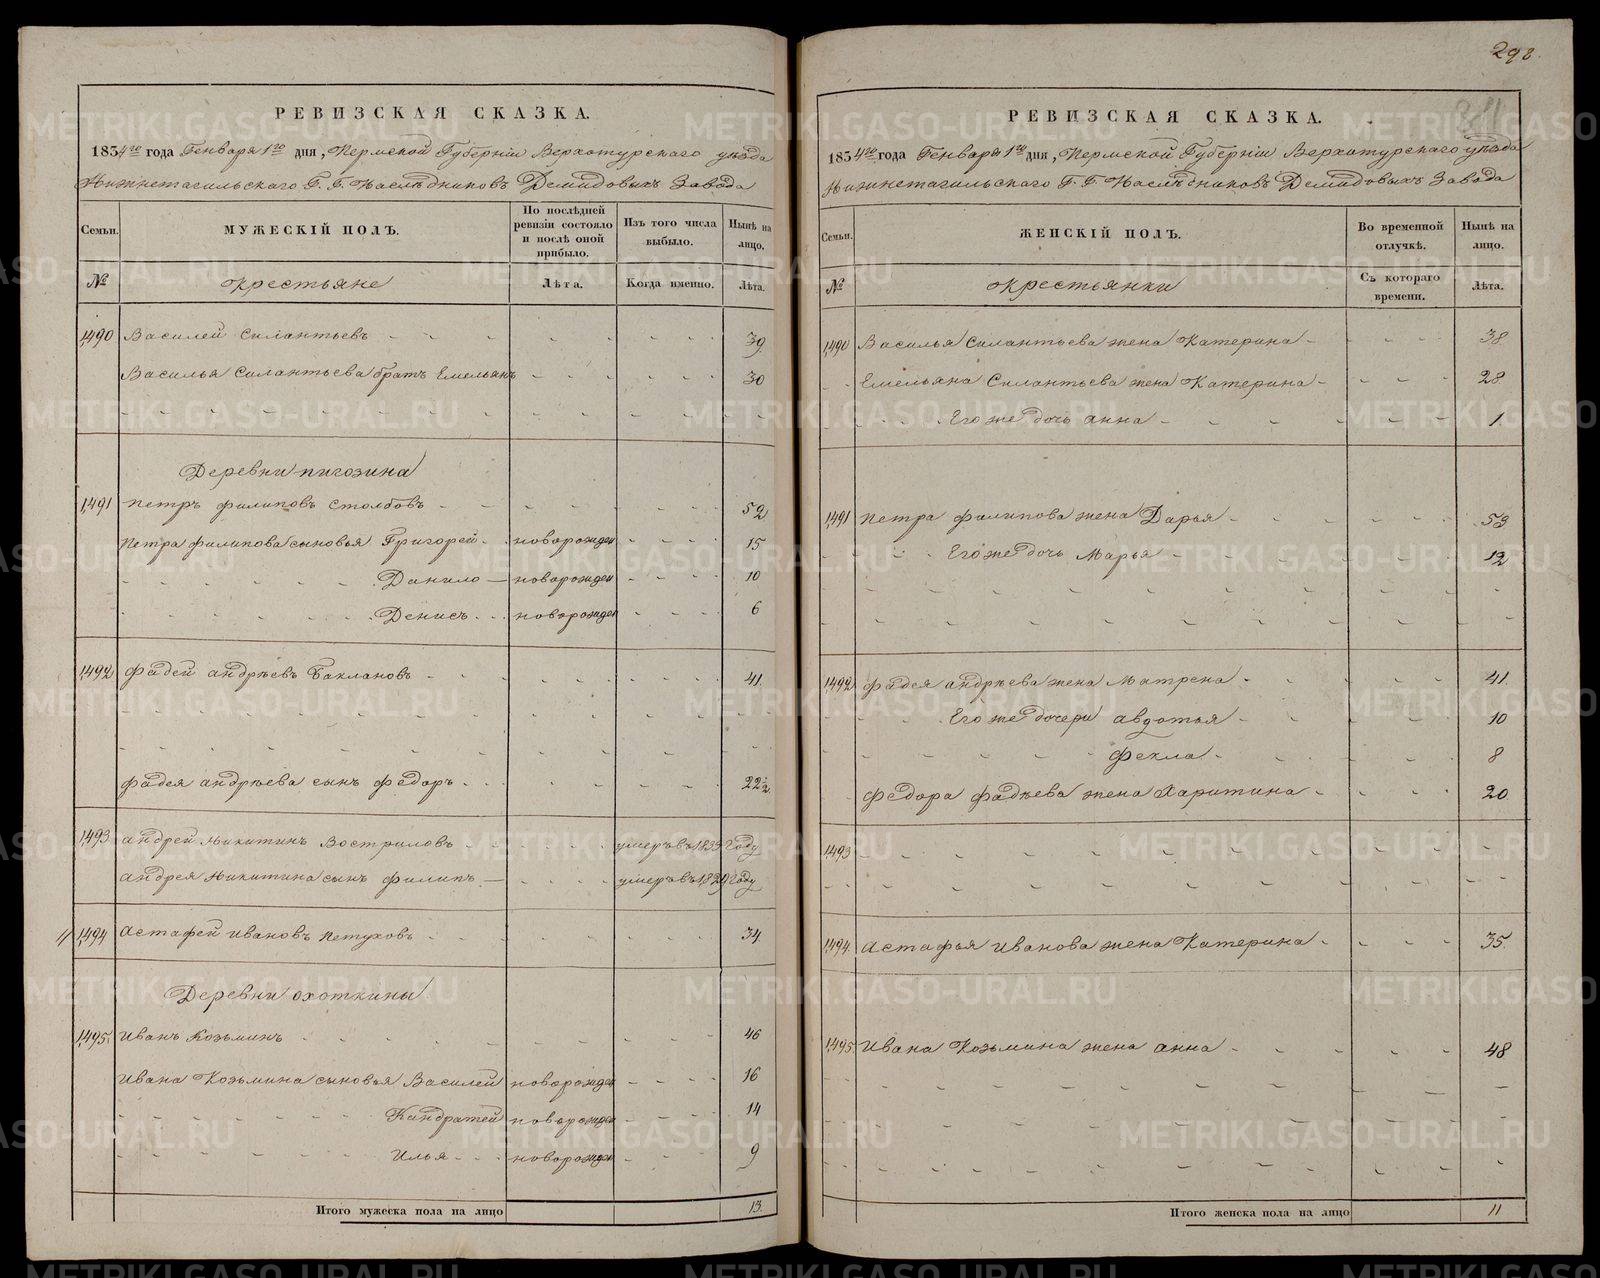 РЕВИЗСКАЯ СКАЗКА.
1834го года Генваря 1го дня, Пермской Губернiи Верхотурскаго уѣзда
Нижнетагильскаго Г. Г. Наслѣдниковъ Демидовыхъ Завода
Семьи.
МУЖЕСКIЙ ПОЛЪ.
По послѣдней ревизiи состояло и послѣ оной прибыло.
Изъ того числа выбыло.
Нынѣ на лицо.
№
крестьяне
Лѣта.
Когда именно.
Лѣта.
1490 Василей Силантьевъ 39
Василья Силантьева братъ Емельянъ 30
Деревни пигозина
1491 Петръ филиповъ Столбовъ 52
Петра филипова сыновья Григорей новорожден 15
Данило новорожден 10
Денисъ новорожден 6
1492 Фадей андрѣевъ Баклановъ 41
фадея андрѣева сынъ федоръ 22½
1493 андрей Никитинъ Востриловъ умеръ въ 1833 Году
андрея Никитина сынъ филипъ умеръ въ 1829 Году
1494 Астафей Ивановъ Петуховъ 34
Деревни охоткины
1495 Иванъ Козьминъ 46
Ивана Козьмина сыновья Василей новорожден 16
Кандратей новорожден 14
Илья новорожден 9
Итого мужеска пола на лицо 13
298.
РЕВИЗСКАЯ СКАЗКА.
1834го года Генваря 1го дня, Пермской Губернiи Верхотурскаго уѣзда
Нижнетагильскаго Г. Г. Наслѣдниковъ Демидовыхъ Завода
Семьи.
ЖЕНСКIЙ ПОЛЪ.
Во временной отлучкѣ.
Нынѣ на лицо.
№
крестьянки
Съ котораго времени.
Лѣта.
1490 Василья Силантьева жена Катерина 38
Емельяна Силантьева жена Катерина 28
Его же дочь анна 1
1491 Петра филипова жена Дарья 53
Его же дочь Марья 12
1492 фадея андрѣева жена Матрена 41
Его же дочери авдотья 10
фекла 8
федора фадѣева жена Харитина 20
1493
1494 Астафья Иванова жена Катерина 35
1495 Ивана Козьмина жена анна 48
Итого женска пола на лицо 11
METRIKI.GASO-URAL.RU